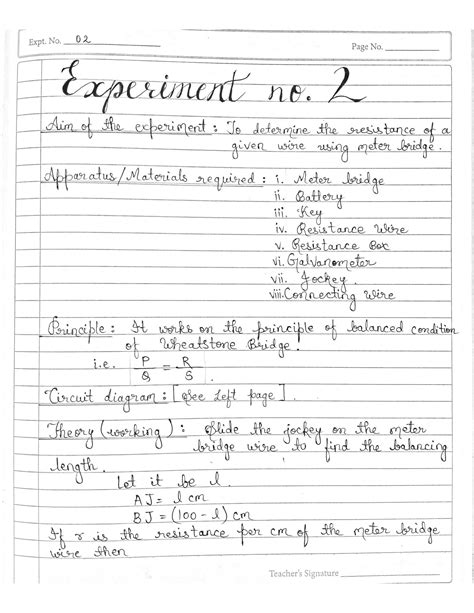 Expt. No. 02
Page No.
Experiment no. 2
Aim of the experiment : To determine the resistance of a
given wire using meter bridge.
Apparatus/Materials required : i. Meter bridge
ii. Battery
iii. Key
iv. Resistance Wire
v. Resistance Box
vi. Galvanometer
vii. Jockey
viii. Connecting Wire
Principle : It works on the principle of balanced condition
of Wheatstone Bridge.
i.e. P/Q = R/S
Circuit diagram : [See Left page].
Theory (working) : Slide the jockey on the meter
bridge wire to find the balancing
length.
Let it be l
AJ = l cm
BJ = (100 - l) cm
If r is the resistance per cm of the meter bridge
wire then
Teacher's Signature